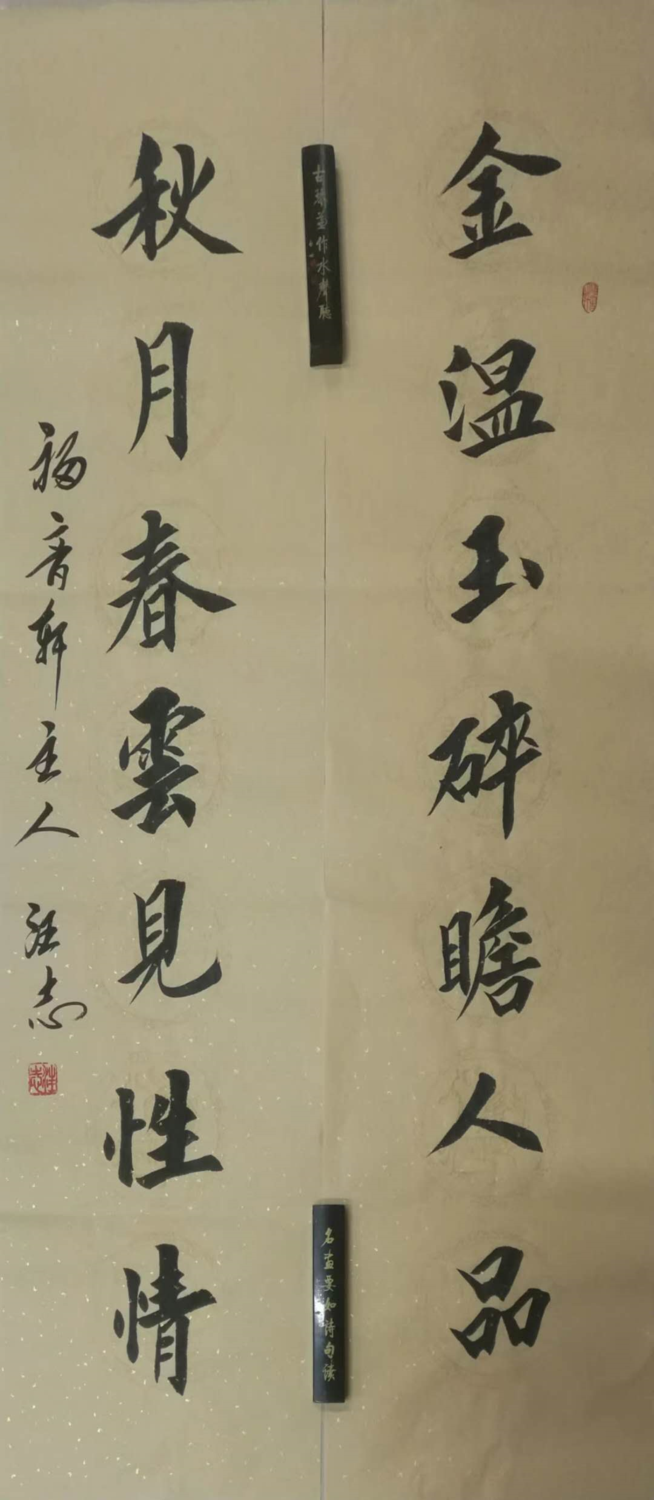 金温玉碎瞻人品
秋月春雲見性情
福音轩主人 汪志
古琴並作水聲聽
名畫要如詩句讀
汪志